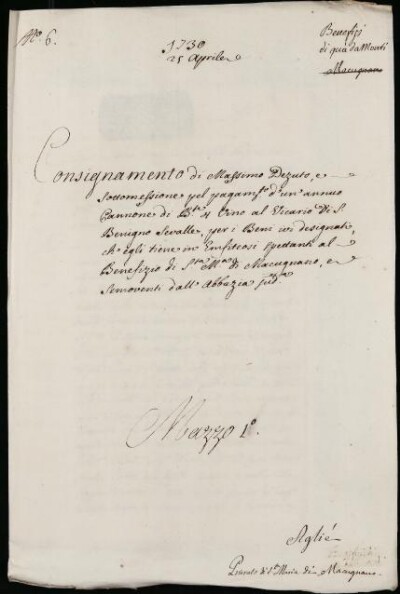 No. 6.
1730
25 Aprile
Benefizi
di quà da Monti
Macugnano
Consignamento di Massimo Dezuto, e
Sottomessione pel pagam.to d'un annuo
Cannone di B.te 4 Vino al Vicario di S.
Benigno Sevalle, per i Beni ivi designati,
ch'egli tiene in Enfiteosi spettanti al
Benefizio di S.ta M.a di Macugnano, e
Semoventi dall'Abbazia sud.a
Mazzo 1o.
Aglié
Priorato di S.ta Maria di Macugnano